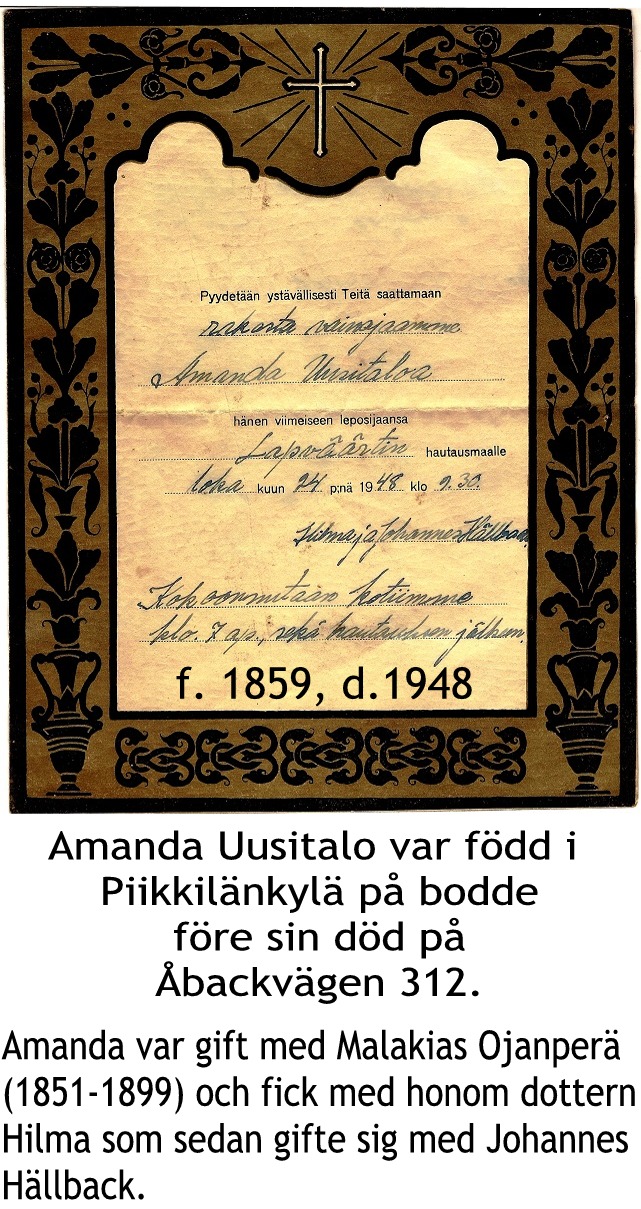 Pyydetään ystävällisesti Teitä saattamaan
rakasta vainajaamme
Amanda Uusitaloa
hänen viimeiseen leposijaansa
Lapväärtin hautausmaalle
loka kuun 24 p:nä 1948 klo 9.30.
Hilma ja Johannes Hällback
Kokoonnutaan kotiimme
klo. 7 ap., sekä hautauksen jälkeen.
f. 1859, d.1948
Amanda Uusitalo var född i
Piikkilänkylä på bodde
före sin död på
Åbackvägen 312.
Amanda var gift med Malakias Ojanperä
(1851-1899) och fick med honom dottern
Hilma som sedan gifte sig med Johannes
Hällback.